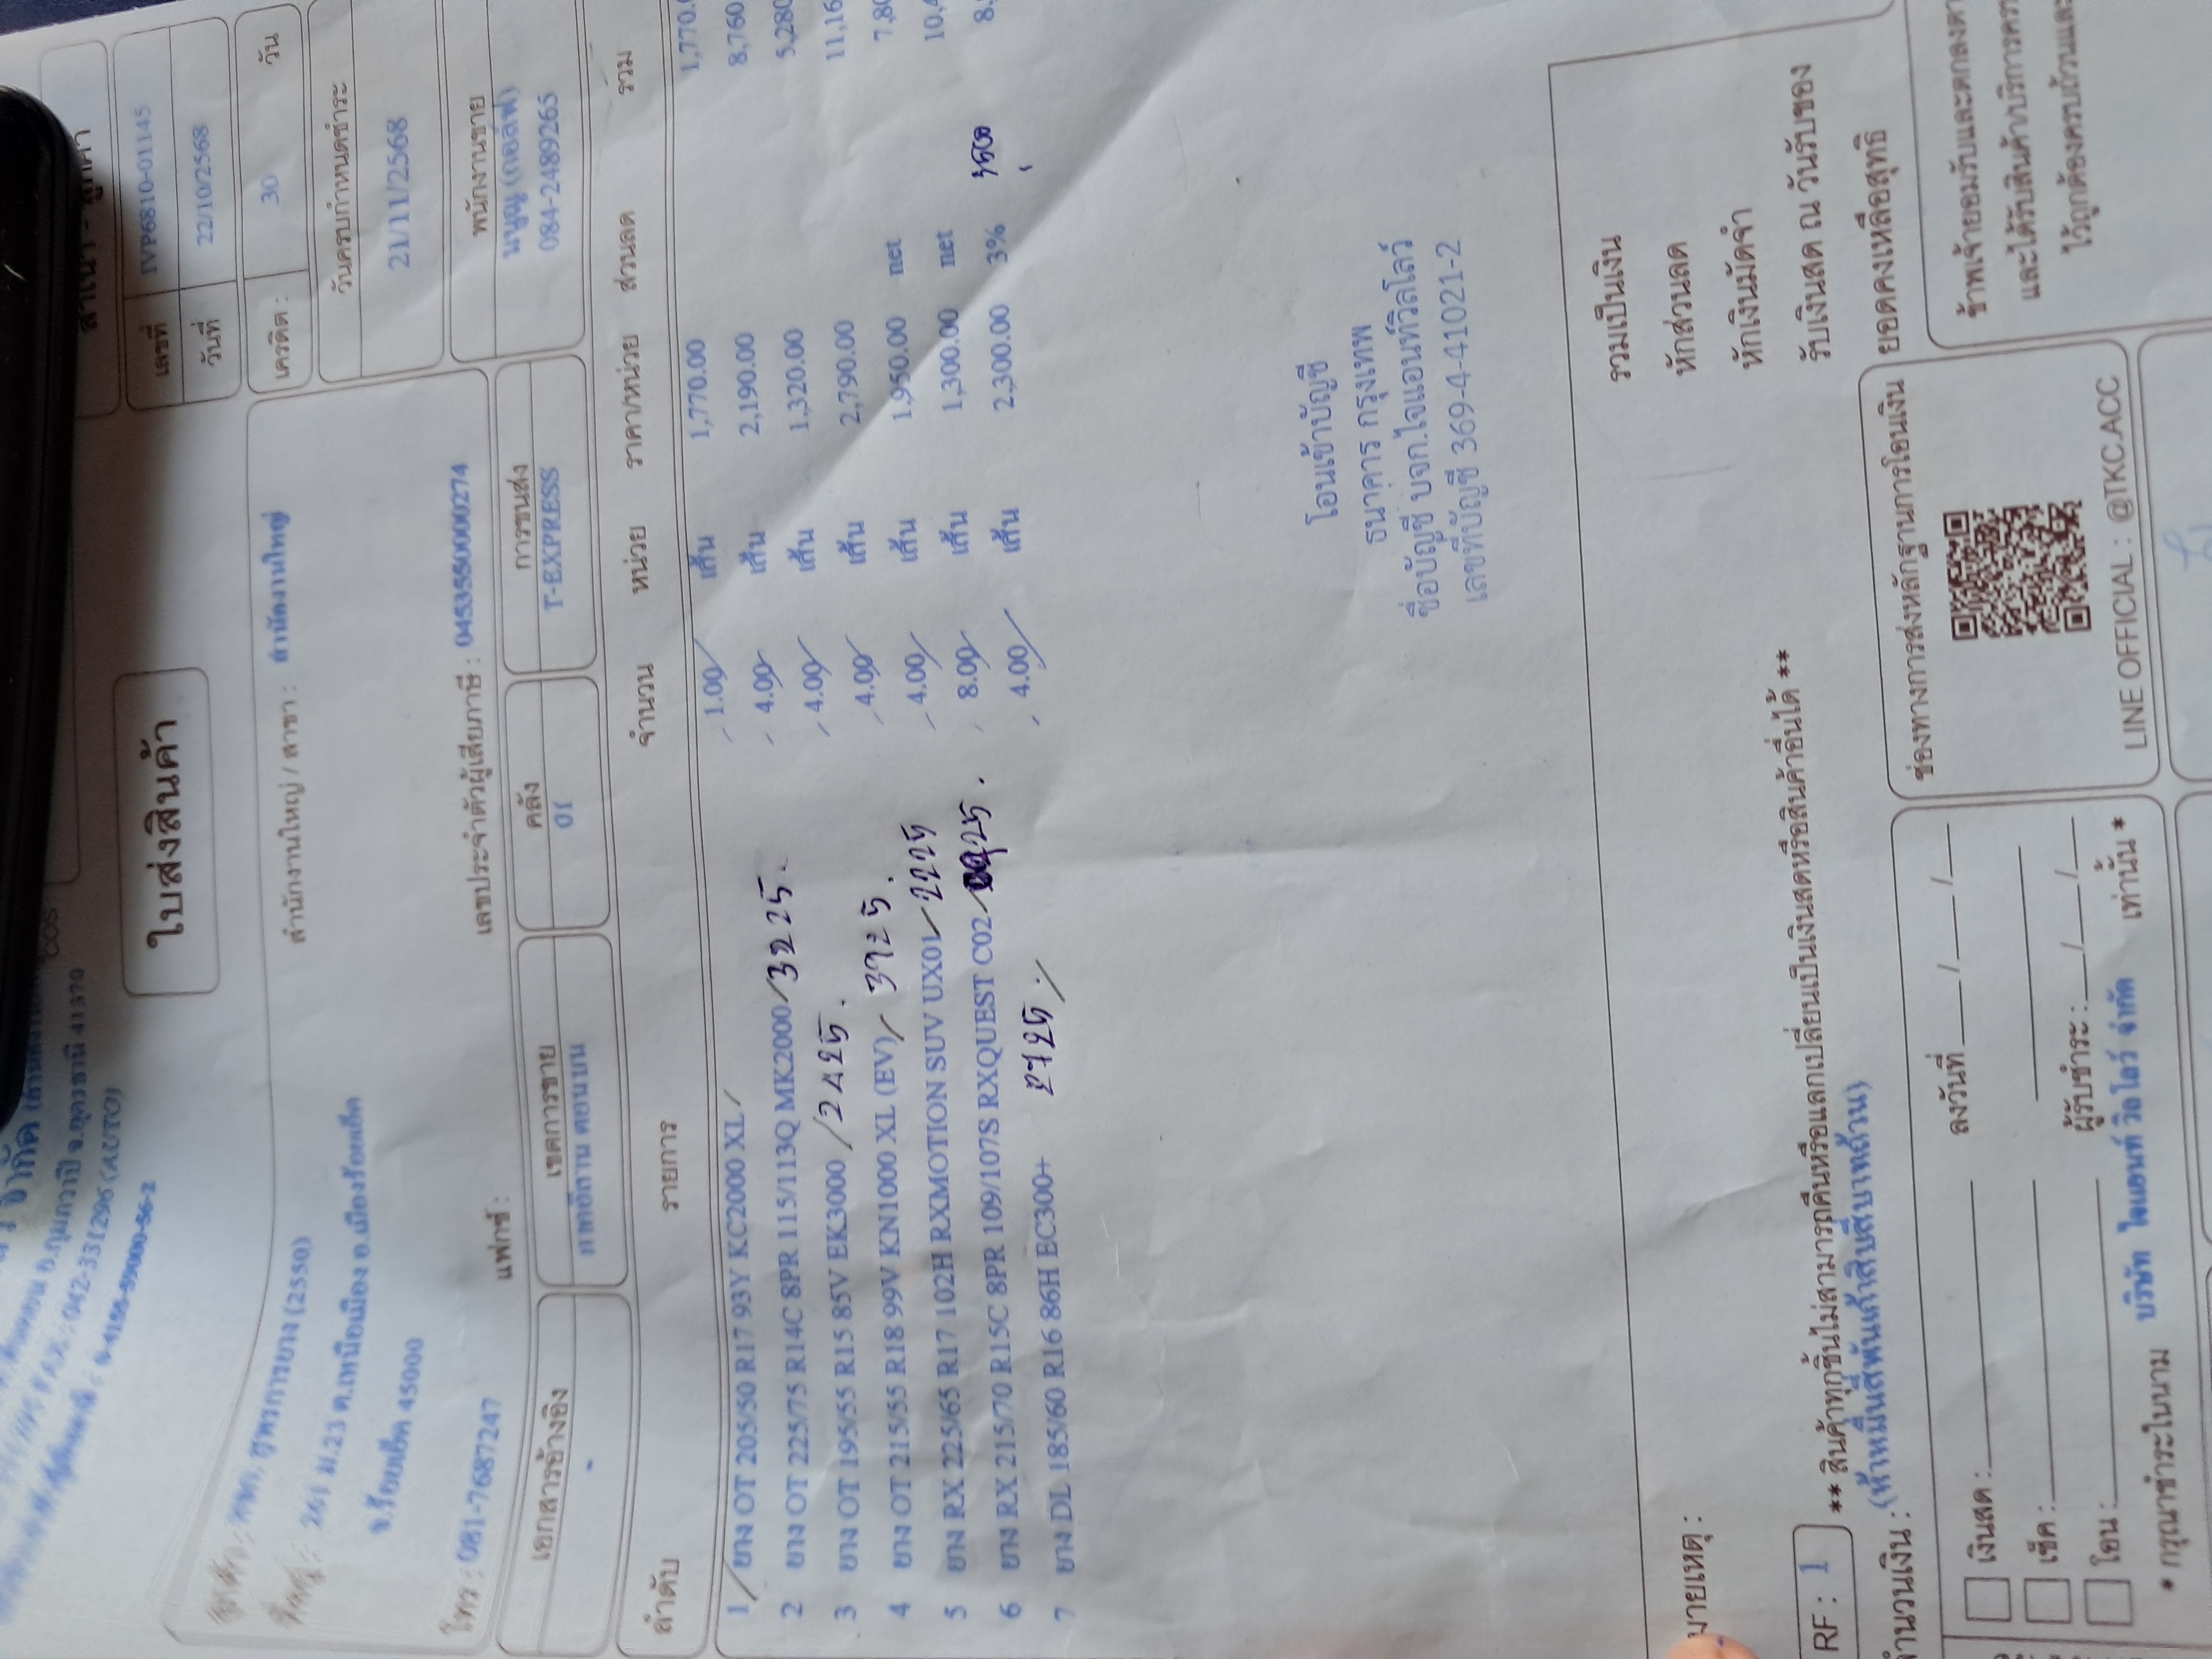 ใบส่งสินค้า
เลขที่ IVP6810-01145
วันที่ 22/10/2568
เครดิต : 30 วัน
วันครบกำหนดชำระ
21/11/2568
พนักงานขาย
084-2489265
สำนักงานใหญ่ / สาขา : สำนักงานใหญ่
261 ม.23 ต.เหนือเมือง อ.เมืองร้อยเอ็ด
จ.ร้อยเอ็ด 45000
โทร : 081-7687247 แฟกซ์ : เลขประจำตัวผู้เสียภาษี : 0453550000274
เอกสารอ้างอิง เขตการขาย คลัง การขนส่ง
- ภาคอีสาน ตอนบน 01 T-EXPRESS
ลำดับ รายการ จำนวน หน่วย ราคา/หน่วย ส่วนลด รวม
1 ยาง OT 205/50 R17 93Y KC2000 XL 1.00 เส้น 1,770.00 1,770.
2 ยาง OT 225/75 R14C 8PR 115/113Q MK2000 / 3225. 4.00 เส้น 2,190.00 8,760
3 ยาง OT 195/55 R15 85V EK3000 / 2425. 4.00 เส้น 1,320.00 5,280
4 ยาง OT 215/55 R18 99V KN1000 XL (EV) / 3725. 4.00 เส้น 2,790.00 11,16
5 ยาง RX 225/65 R17 102H RXMOTION SUV UX01 2225 4.00 เส้น 1,950.00 net 7,80
6 ยาง RX 215/70 R15C 8PR 109/107S RXQUEST C02 25. 8.00 เส้น 1,300.00 net 10,4
7 ยาง DL 185/60 R16 86H EC300+ 2725 4.00 เส้น 2,300.00 3% 8,
โอนเข้าบัญชี
ธนาคาร กรุงเทพ
ชื่อบัญชี บจก.ไจแอนท์วิลโลว์
เลขที่บัญชี 369-4-41021-2
หมายเหตุ :
รวมเป็นเงิน
หักส่วนลด
หักเงินมัดจำ
รับเงินสด ณ วันรับของ
ยอดคงเหลือสุทธิ
RF : 1 ** สินค้าทุกชิ้นไม่สามารถคืนหรือแลกเปลี่ยนเป็นเงินสดหรือสินค้าอื่นได้ **
จำนวนเงิน : (ห้าหมื่นสี่พันเก้าสิบสี่บาทถ้วน)
เงินสด : ลงวันที่ / /
เช็ค :
โอน : ผู้รับชำระ : / /
* กรุณาชำระในนาม บริษัท ไจแอนท์ วิลโลว์ จำกัด เท่านั้น *
ช่องทางการส่งหลักฐานการโอนเงิน
LINE OFFICIAL : @TKC.ACC
ข้าพเจ้ายอมรับและตกลงตา
และได้รับสินค้า/บริการคร
ไว้ถูกต้องครบถ้วนและ